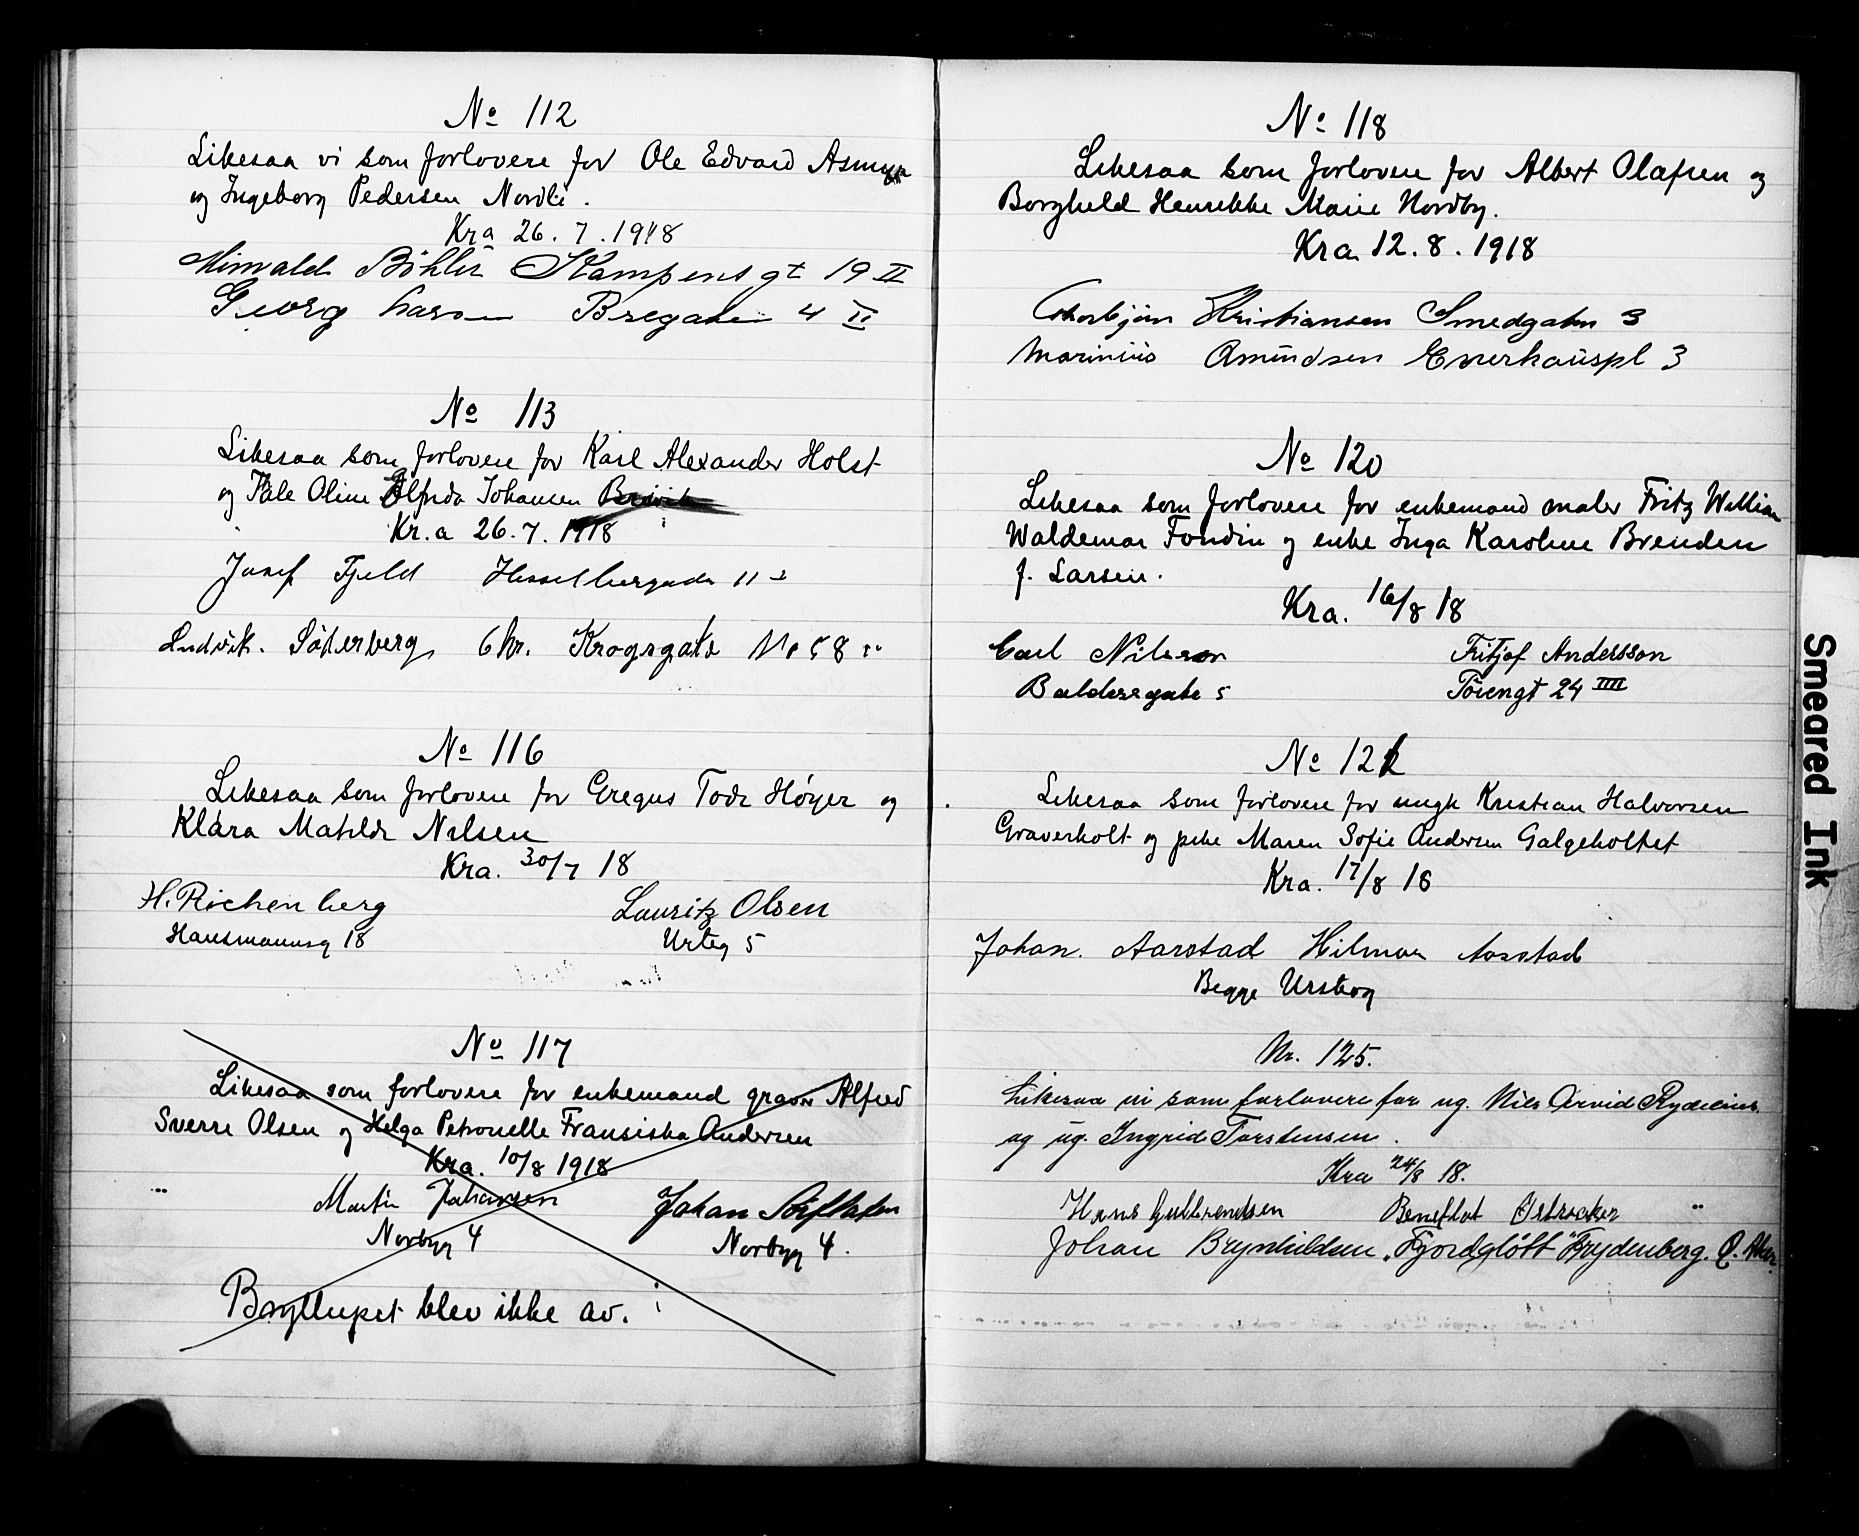 No 112
Likesaa vi som forlovere for Ole Edvard
og Ingeborg Pedersen Nordli.
Kra 26.7.1918
Minvald Böhler Kampensgt 19 II
Georg Larsen Bregaten 4 II
No 113
Likesaa som forlovere for Karl Alexander Holst
og Oline Elfrida Johansen
Kr.a 26.7.1918
Josef Fjeld Hesselbergsgade 11
Ludvik. Söderberg Chr. Krogsgate No 58
No 116
Likesaa som forlovere for Gregus Tode Høyer og
Klara Matilde Nilsen
Kra. 30/7 18
H. Richenberg
Hausmannsg 18
Lauritz Olsen
Urteg 5
No 117
Likesaa som forlovere for enkemand graver Alfred
Sverre Olsen og Helga Petronelle Fransiska Andersen
Kra. 10/8 1918
Martin Johansen
Norbyg 4
Johan
Norbyg 4.
Bryllupet blev ikke av.
No 118
Likesaa som forlovere for Albert Olafsen og
Borghild Henrikke Marie Nordby.
Kra 12.8.1918
Thorbjørn Kristiansen Smedgaten 3
Marinius Amundsen Enerhaugspl 3
No 120
Likesaa som forlovere for enkemand maler Fritz William
Waldemar Fondin og enke Inga Karoline Brenden
f. Larsen.
Kra. 16/8 18
Carl Nilsson
Baldersgate 5
Fritjof Andersson
Töiengt 24 IIII
No 121
Likesaa som forlovere for ungk Kristian Halvorsen
Graverholt og pike Maren Sofie Andersen Galgeholtet
Kra. 17/8 18
Johan. Aarstad Hilmar Aarstad
Begge Urskog
Nr. 125.
Likesaa vi som forlovere for ug. Nils Arvid Rydelius
og ug. Ingrid Torstensen.
Kra 24/8 18.
Hans Gulbrandsen Beneflot Østre Aker
Johan Brynhildsen "Fjordgløtt" Frydenberg. Ø. Aker.
Smeared Ink